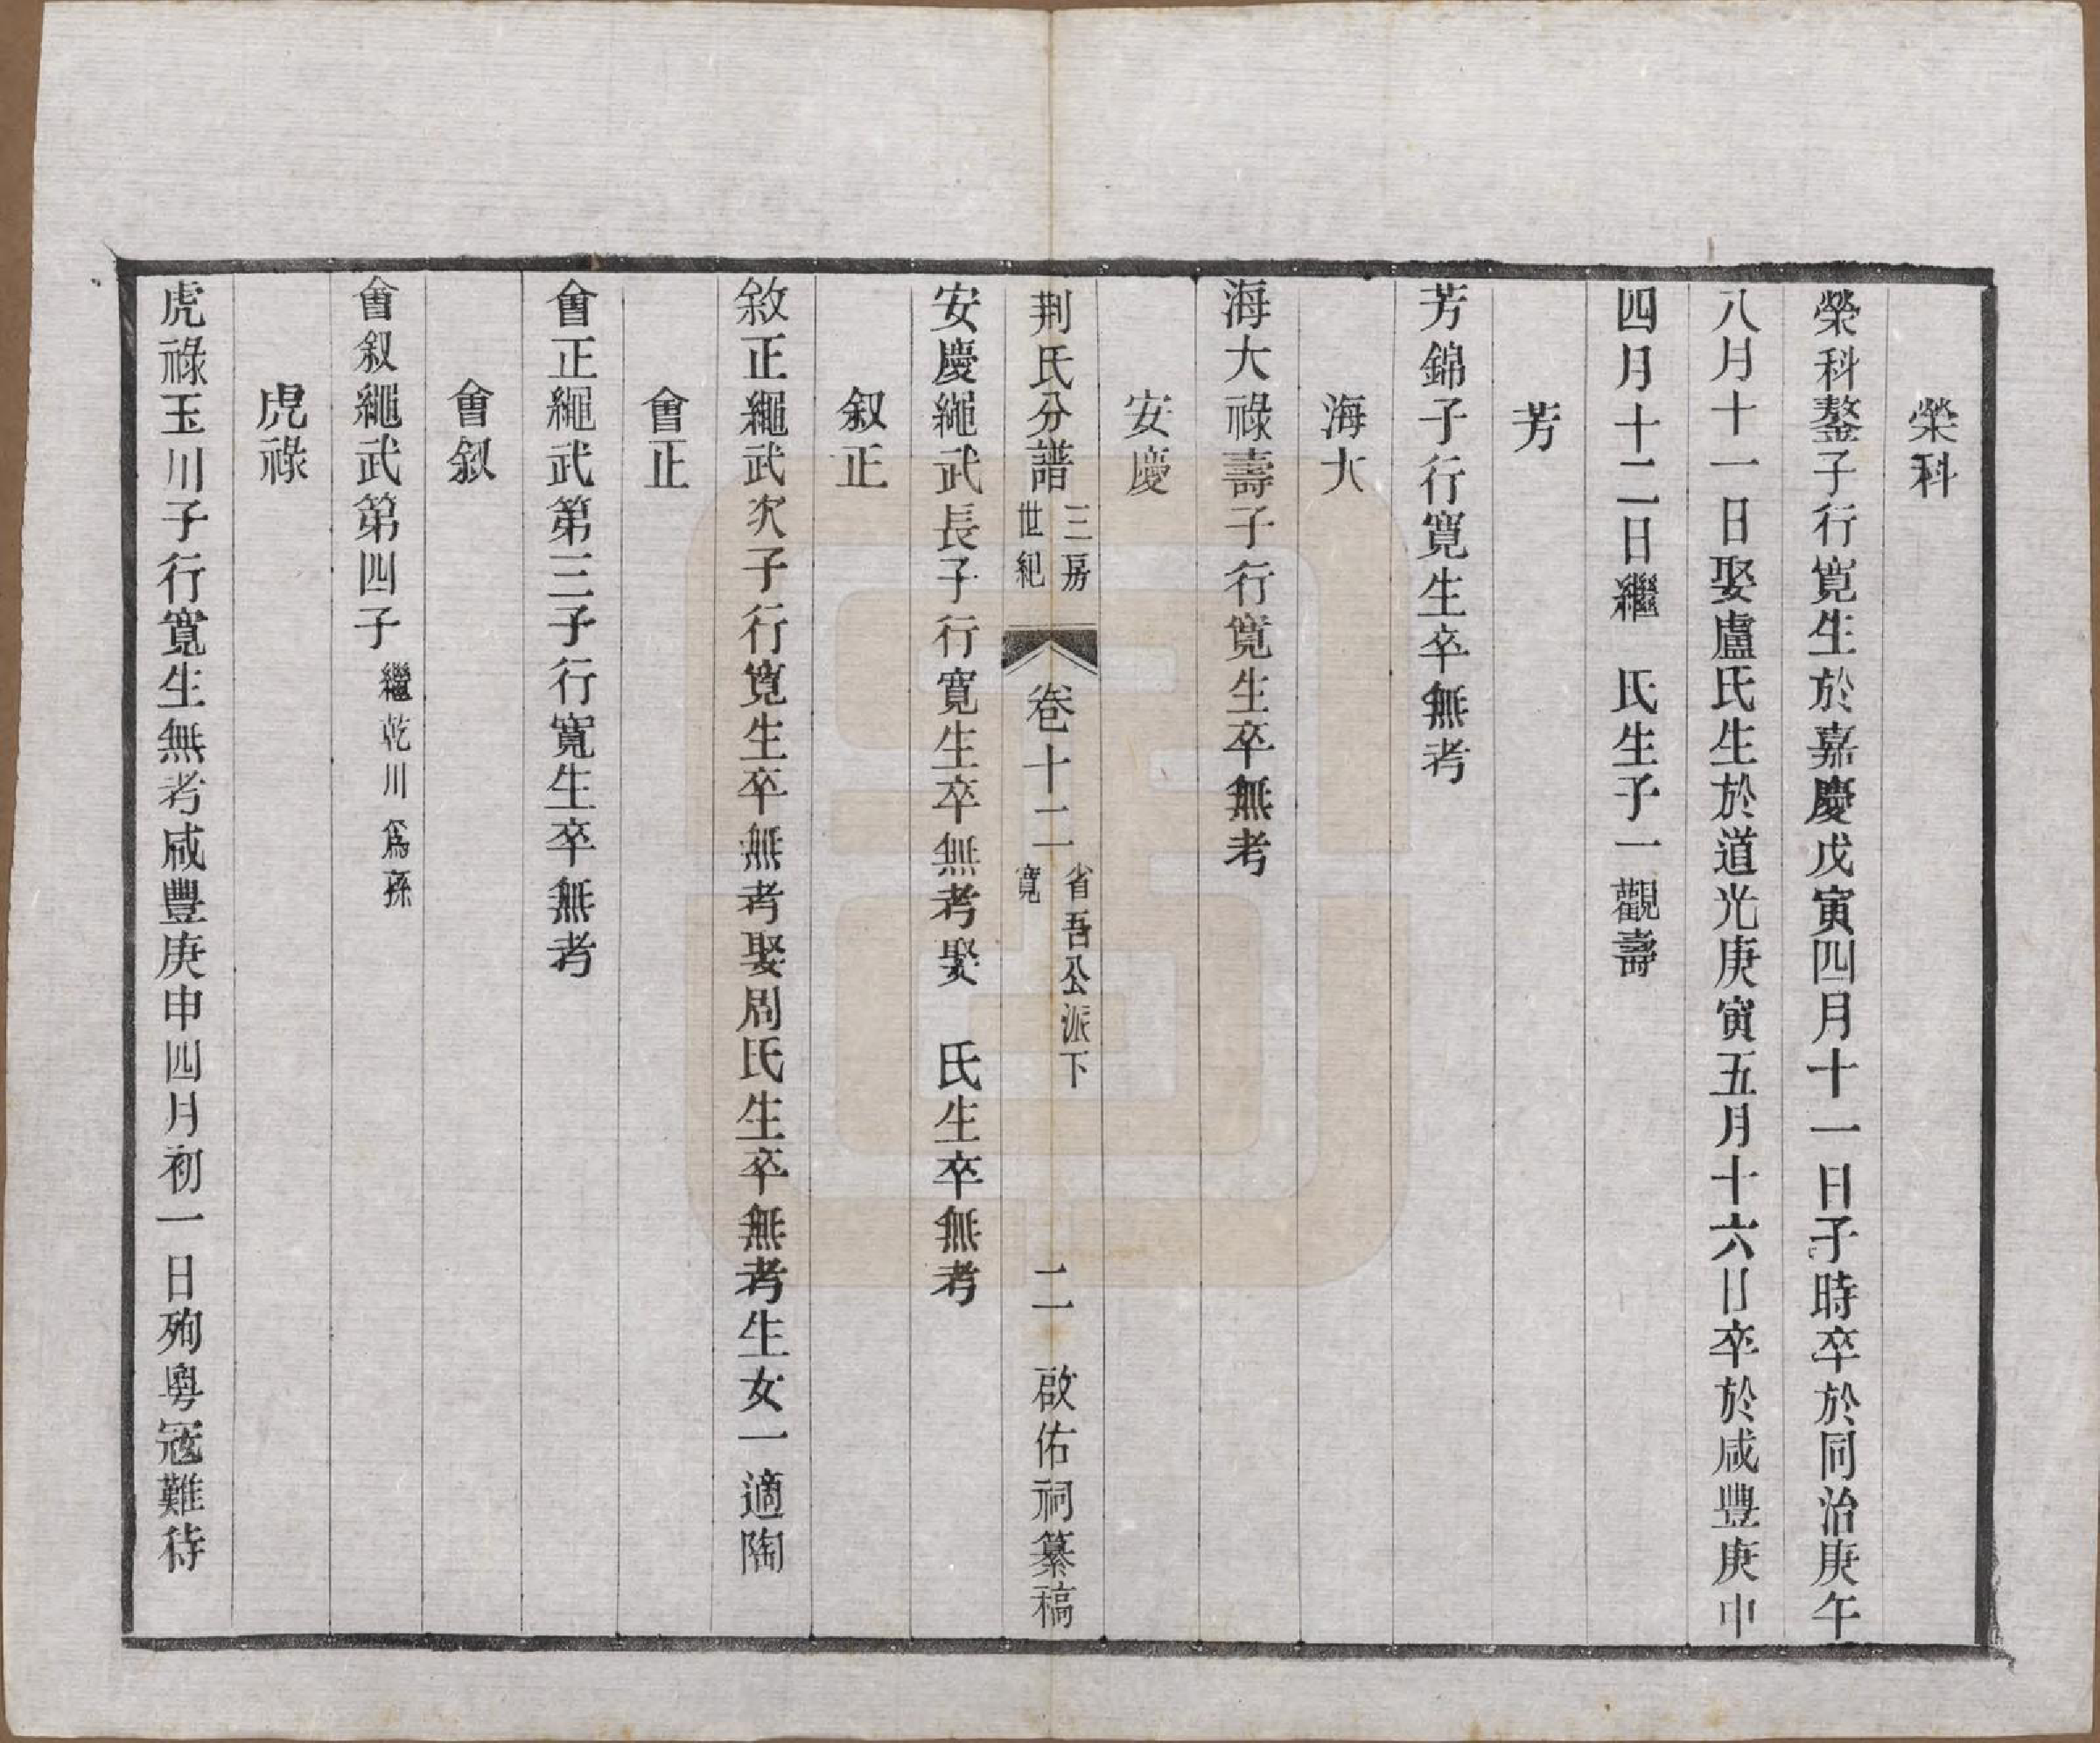 榮科
榮科鏊子行寬生於嘉慶戊寅四月十一日子時卒於同治庚午
八月十一日娶盧氏生於道光庚寅五月十六日卒於咸豐庚申
四月十二日繼　氏生子一觀壽
芳
芳錦子行寬生卒無考
海大
海大祿壽子行寬生卒無考
安慶
荆氏分譜
三房
世紀
卷十二
省吾公派下
寬
二
啟佑祠纂稿
安慶繩武長子行寬生卒無考娶　氏生卒無考
叙正
敘正繩武次子行寬生卒無考娶周氏生卒無考生女一適陶
會正
會正繩武第三子行寬生卒無考
會叙
會叙繩武第四子
繼乾川爲孫
虎祿
虎祿玉川子行寬生無考咸豐庚申四月初一日殉粵寇難待